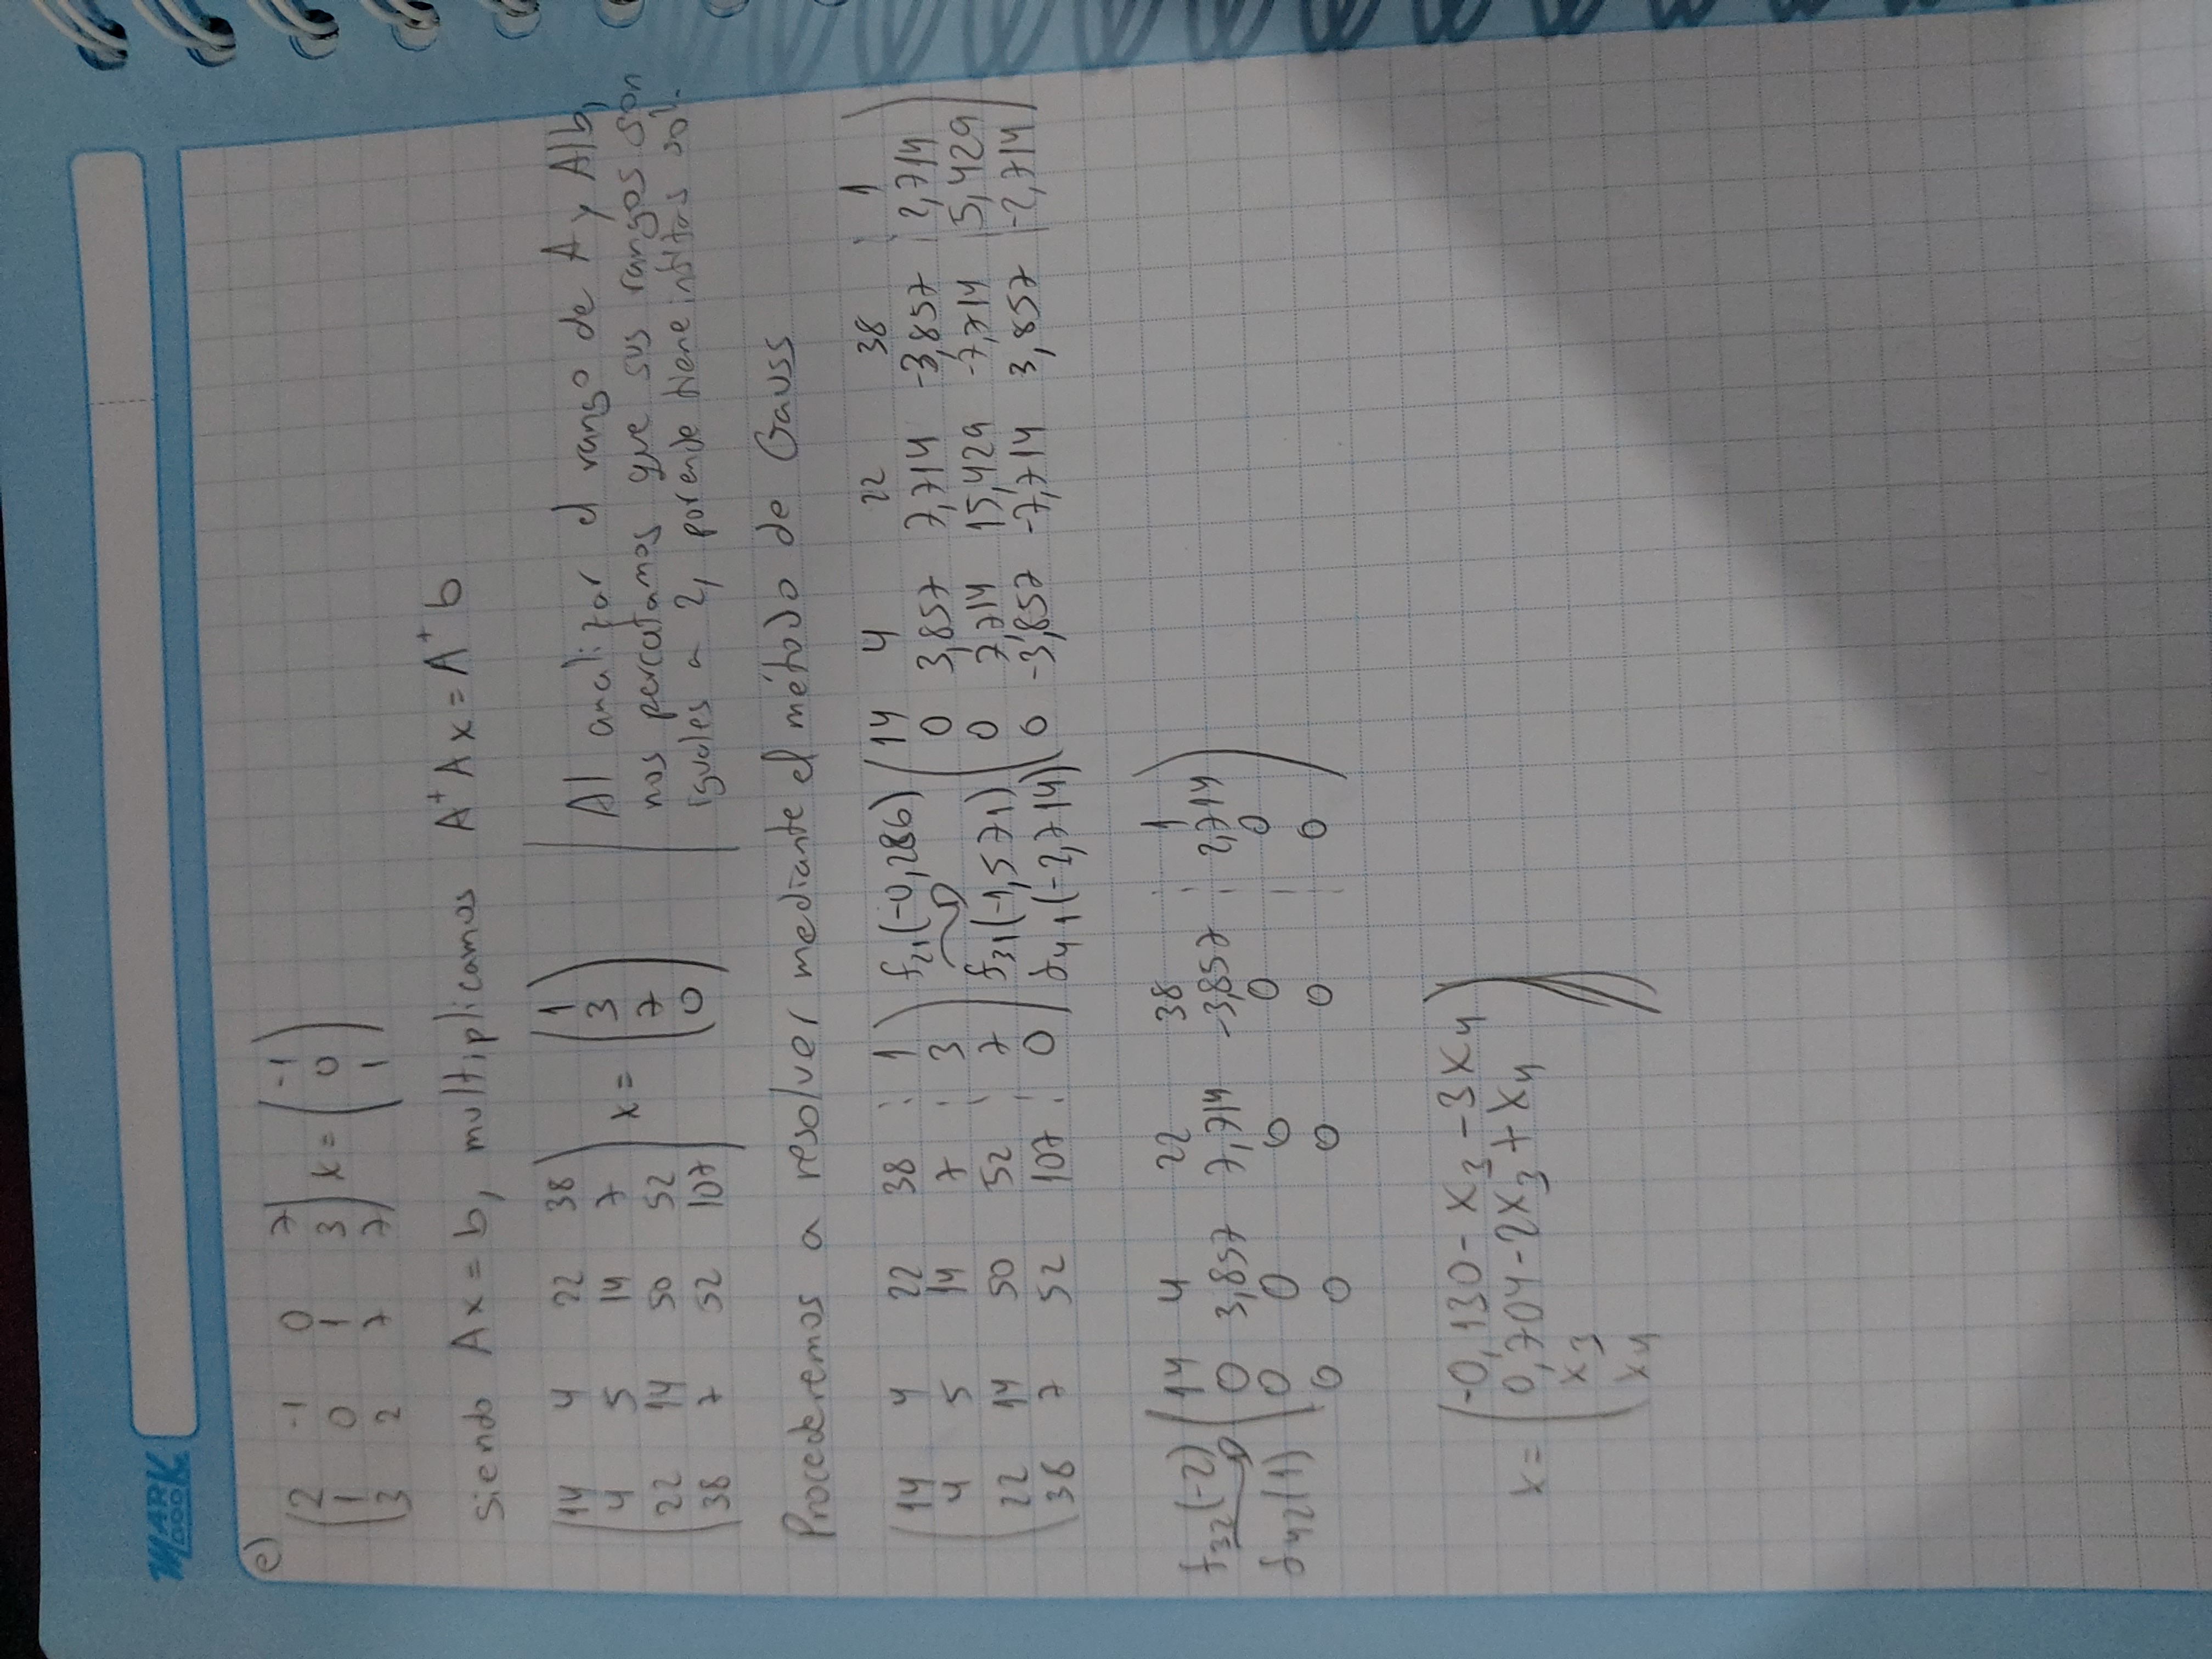 MARK
BOOK
e)
2 -1 0 7
1 0 1 3
3 2 7 7
x =
-1
0
1
Siendo Ax = b, multiplicamos A⁺Ax = A⁺b
14 4 22 38
4 5 14 7
22 14 50 52
38 7 52 107
x =
1
3
7
0
Al analizar el rango de A y A|b,
nos percatamos que sus rangos son
iguales a 2, porende tiene infitas sol.
Procederemos a resolver mediante el método de Gauss
14 4 22 38 : 1
4 5 14 7 : 3
22 14 50 52 : 7
38 7 52 107 : 0
f21(-0,286)
f31(-1,571)
f41(-2,714)
14 4 22 38 : 1
0 3,857 7,714 -3,857 : 2,714
0 7,714 15,429 -7,714 | 5,429
0 -3,857 -7,714 3,857 | -2,714
f32(-2)
f42(1)
14 4 22 38 : 1
0 3,857 7,714 -3,857 : 2,714
0 0 0 0 : 0
0 0 0 0 : 0
x =
-0,130 - x3 - 3x4
0,704 - 2x3 + x4
x3
x4